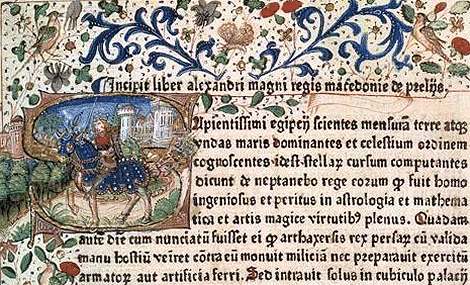 Incipit liber alexandri magni regis macedonie de prelijs.
Sapientissimi egipcij scientes mensurā terre atq;
vndas maris dominantes et celestium ordinem
cognoscentes id est stellarꝝ cursum computantes
dicunt de neptanebo rege eorum qꝫ fuit homo
ingeniosus et peritus in astrologia et mathema
tica et artis magice virtutibꝰ plenus. Quadam
aute die cum nunciatū fuisset ei qꝫ arthaxersis rex persaꝝ cū valida
manu hostiū veiret cōtra eū monuit miliciā nec preparauit exercitū
armatoꝝ aut artificia ferri. Sed intrauit solus in cubiculo palacij